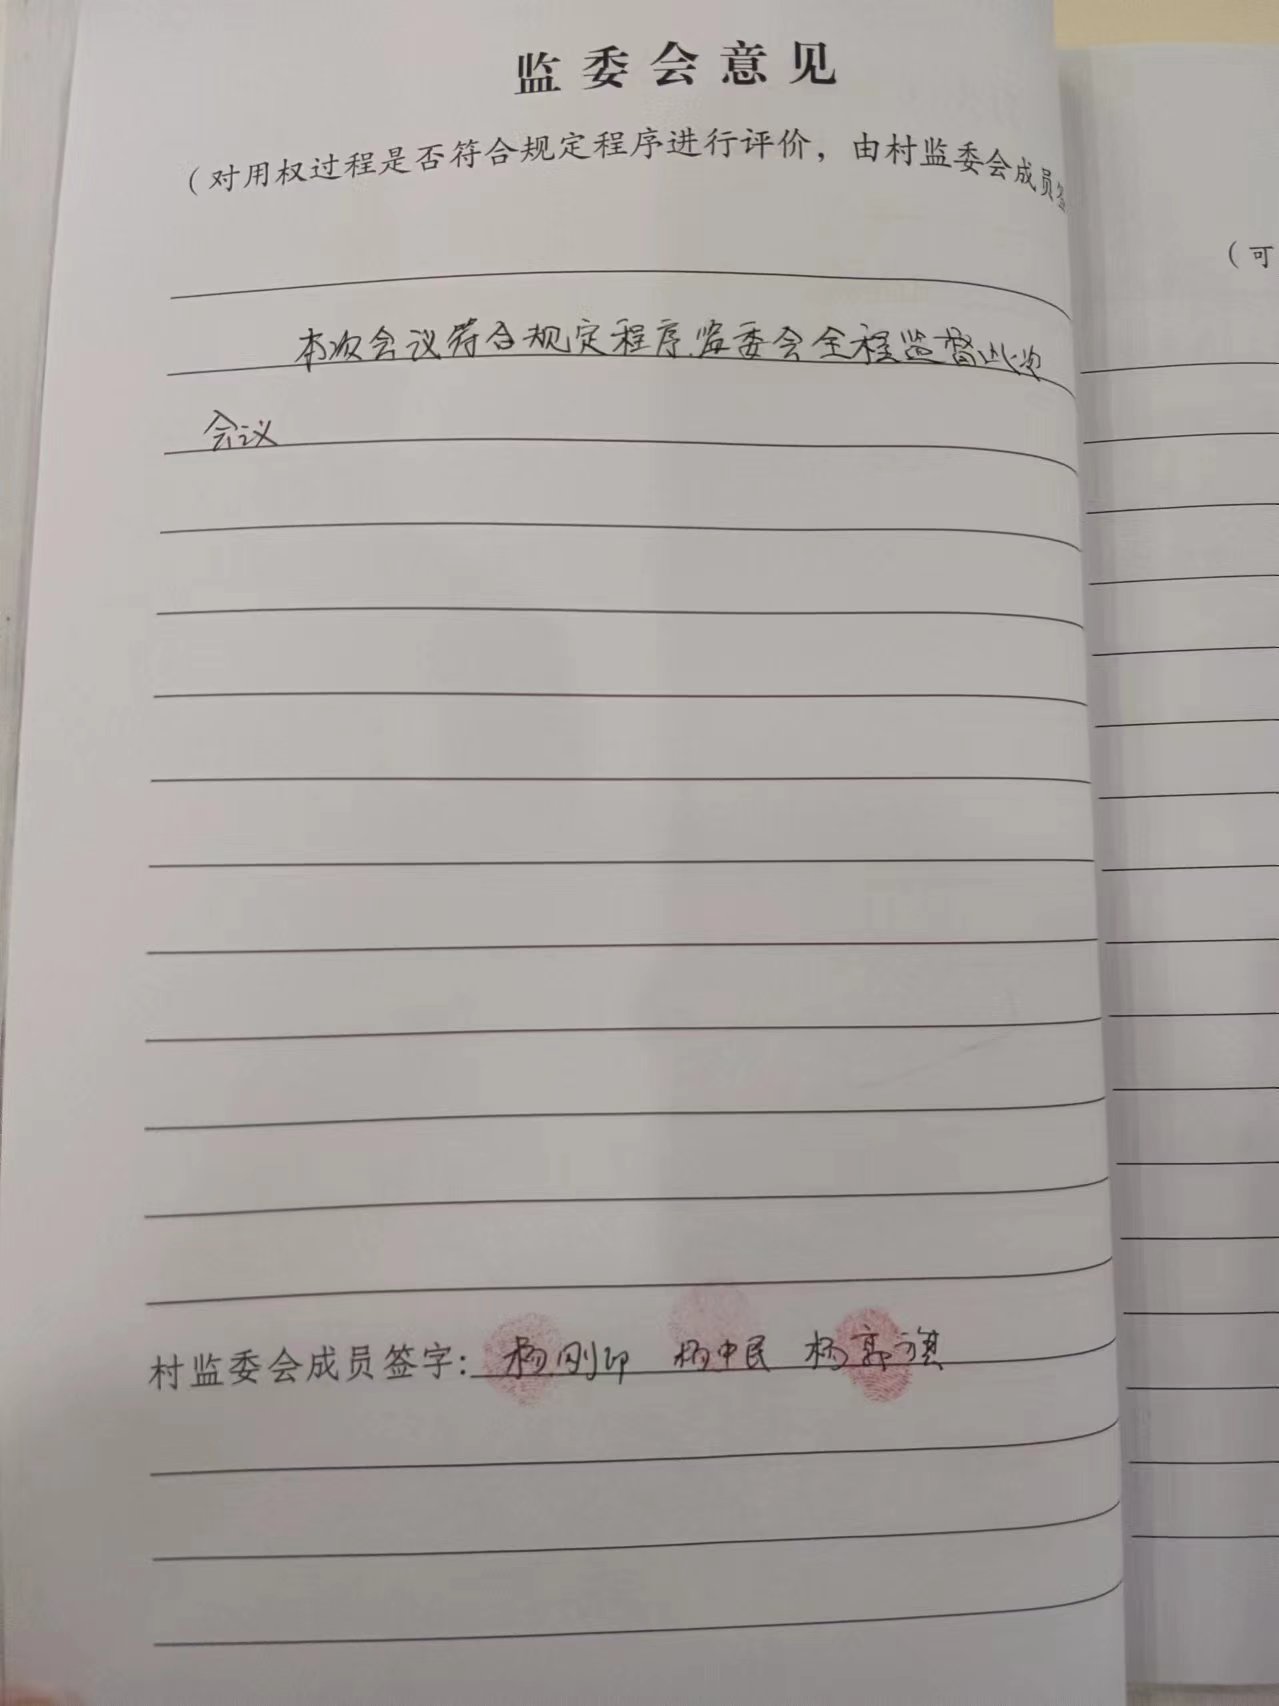 监委会意见
（对用权过程是否符合规定程序进行评价，由村监委会成员签
（可
本次会议符合规定程序.监委会全程监督此次
会议
村监委会成员签字：杨刚印 杨中民 杨亭旗